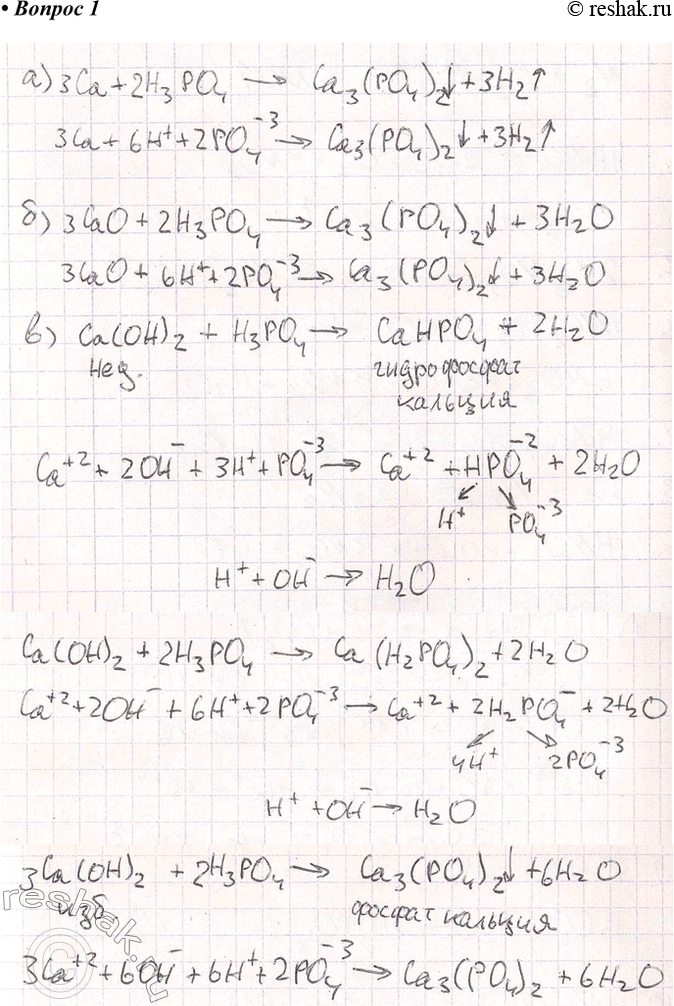 • Вопрос 1
© reshak.ru
а) 3Ca + 2H₃PO₄ → Ca₃(PO₄)₂↓ + 3H₂↑
3Ca + 6H⁺ + 2PO₄⁻³ → Ca₃(PO₄)₂↓ + 3H₂↑
б) 3CaO + 2H₃PO₄ → Ca₃(PO₄)₂↓ + 3H₂O
3CaO + 6H⁺ + 2PO₄⁻³ → Ca₃(PO₄)₂↓ + 3H₂O
в) Ca(OH)₂ + H₃PO₄ → CaHPO₄ + 2H₂O
нед. гидрофосфат
кальция
Ca⁺² + 2OH⁻ + 3H⁺ + PO₄⁻³ → Ca⁺² + HPO₄⁻² + 2H₂O
H⁺ PO₄⁻³
H⁺ + OH⁻ → H₂O
Ca(OH)₂ + 2H₃PO₄ → Ca(H₂PO₄)₂ + 2H₂O
Ca⁺² + 2OH⁻ + 6H⁺ + 2PO₄⁻³ → Ca⁺² + 2H₂PO₄⁻ + 2H₂O
4H⁺ 2PO₄⁻³
H⁺ + OH⁻ → H₂O
3Ca(OH)₂ + 2H₃PO₄ → Ca₃(PO₄)₂↓ + 6H₂O
изб. фосфат кальция
3Ca⁺² + 6OH⁻ + 6H⁺ + 2PO₄⁻³ → Ca₃(PO₄)₂ + 6H₂O
reshak.ru
©